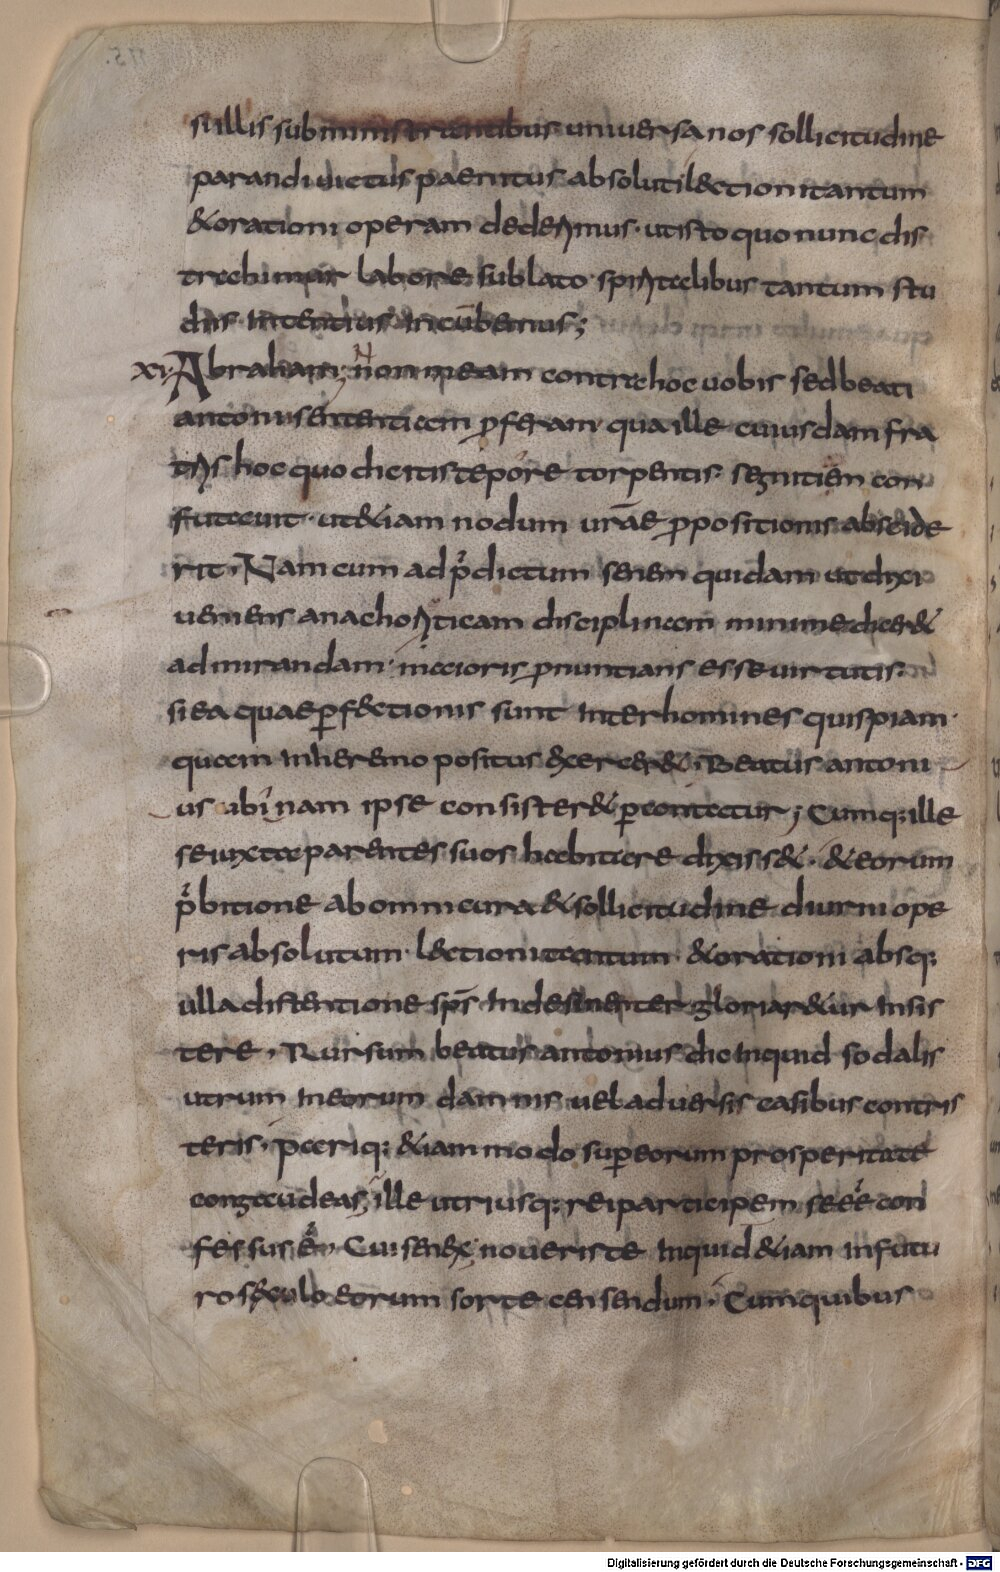 s illis subministrantibus universa nos sollicitudine
parandi victus paenitus absoluti lectioni tantum
& orationi operam dederimus · ut isto quo nunc dis
trahimur labore sublato spiritalibus tantum stu
diis intentius incūbemus ;
XI · Abraham ; Non meam contra hoc vobis sed beati
antonii sententiam ꝓferam · qua ille cuiusdam fra
tris hoc quo dicitis tēpore torpentis · segnitiem con
futavit · ut &iam nodum urāe ꝓpositionis abscide
rit · Nam cum ad p̄dictum senem quidam ut dixi
veniens anachoriticam disciplinam minime dicer&
admirandam · maioris ꝓnuntians esse virtutis ·
si ea quae ꝑfectionis sunt inter homines quispiam ·
quam in heremo positus exercer& · Beatus antoni
us ubinam ipse consister& ꝑcontatur ; Cumq; ille
se iuxta parentes suos habitare dixiss& · & eorum
p̄bitione ab omni cura & sollicitudine diurni ope
ris absolutum · lectioni tantum & orationi absq;
ulla distentione sp̄s indesinenter gloriar&ur insis
tere · Rursum beatus antonius dic inquid sodalis
utrum in eorum damnis vel adversis casibus contris
teris · pariq; &iam modo suꝑ eorum prosperitate
congaudeas ; ille utriusq; rei participem se eē con
fessus ē · Cui senex noveris te inquid &iam in futu
ro seculo eorum sorte censendum · Cum quibus
Digitalisierung gefördert durch die Deutsche Forschungsgemeinschaft · DFG